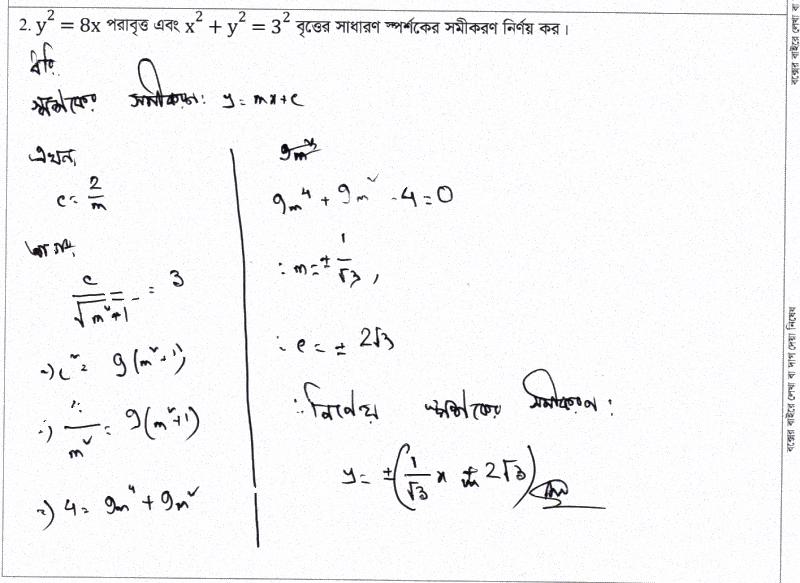 2. y² = 8x পরাবৃত্ত এবং x² + y² = 3² বৃত্তের সাধারণ স্পর্শকের সমীকরণ নির্ণয় কর।
ধরি,
স্পর্শকের সমীকরণ: y = mx + c
এখন,
c = 2/m
আবার,
c/√(m²+1) = 3
⇒ c² = 9(m²+1)
⇒ 4/m² = 9(m²+1)
⇒ 4 = 9m⁴ + 9m²
9m⁴ + 9m² - 4 = 0
∴ m = ± 1/√3,
∴ c = ± 2√3
∴ নির্ণেয় স্পর্শকের সমীকরণ:
y = ±(1/√3 x + 2√3)
বক্সের বাইরে লেখা বা
বক্সের বাইরে লেখা বা দাগ দেয়া নিষেধ